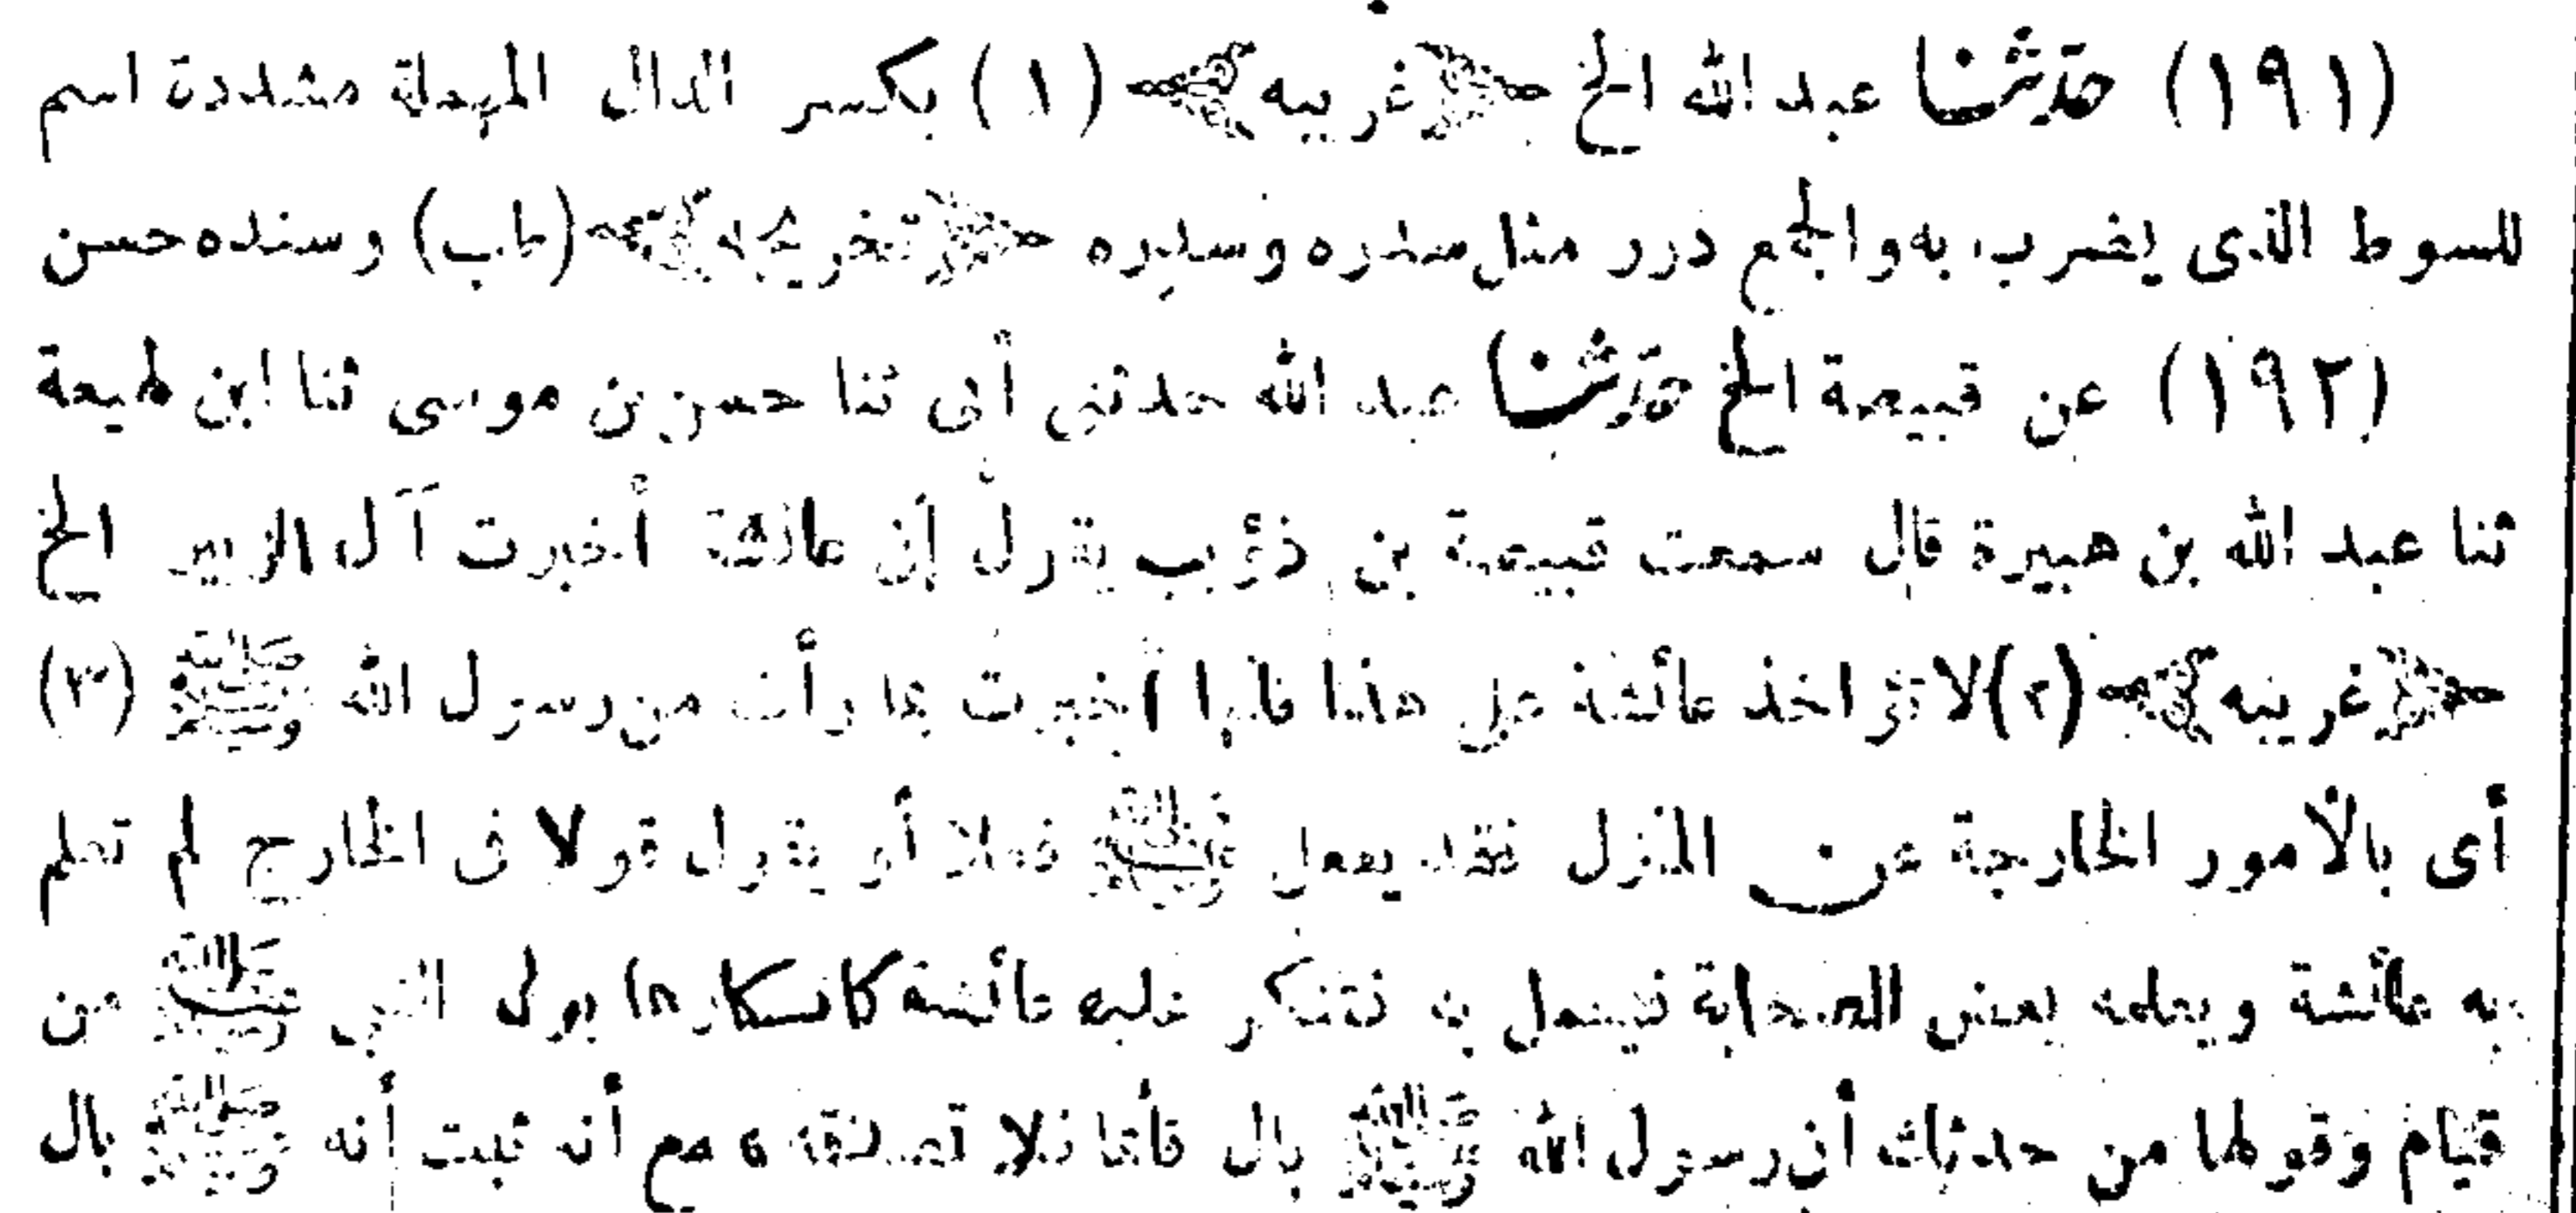 (١٩١) حدثنا عبد الله الخ ﴿غريبه﴾ (١) بكسر الدال المهملة مشددة اسم
للسوط الذى يضرب به والجمع درر مثل سدره وسدره ﴿تخريجه﴾ (طب) وسنده حسن
(١٩٢) عن قبيصة الخ حدثنا عبد الله حدثنى أبى ثنا حسن بن موسى ثنا ابن لهيعة
ثنا عبد الله بن هبيرة قال سمعت قبيصة بن ذؤيب يقول إن عائشة أخبرت آل الزبير الخ
﴿غريبه﴾ (٢) لا تؤاخذ عائشة على هذا فانها أخبرت بما رأت من رسول الله ﷺ (٣)
أى بالأمور الخارجة عن المنزل فقد يفعل ﷺ فعلا أو يقول قولا فى الخارج لم تعلم
به عائشة ويعلمه بعض الصحابة فيعمل به فتنكر عليه عائشة كانكارها بول النبى ﷺ من
قيام وقولها من حدثك أن رسول الله ﷺ بال قائما فلا تصدقه ، مع أنه ثبت أنه ﷺ بال